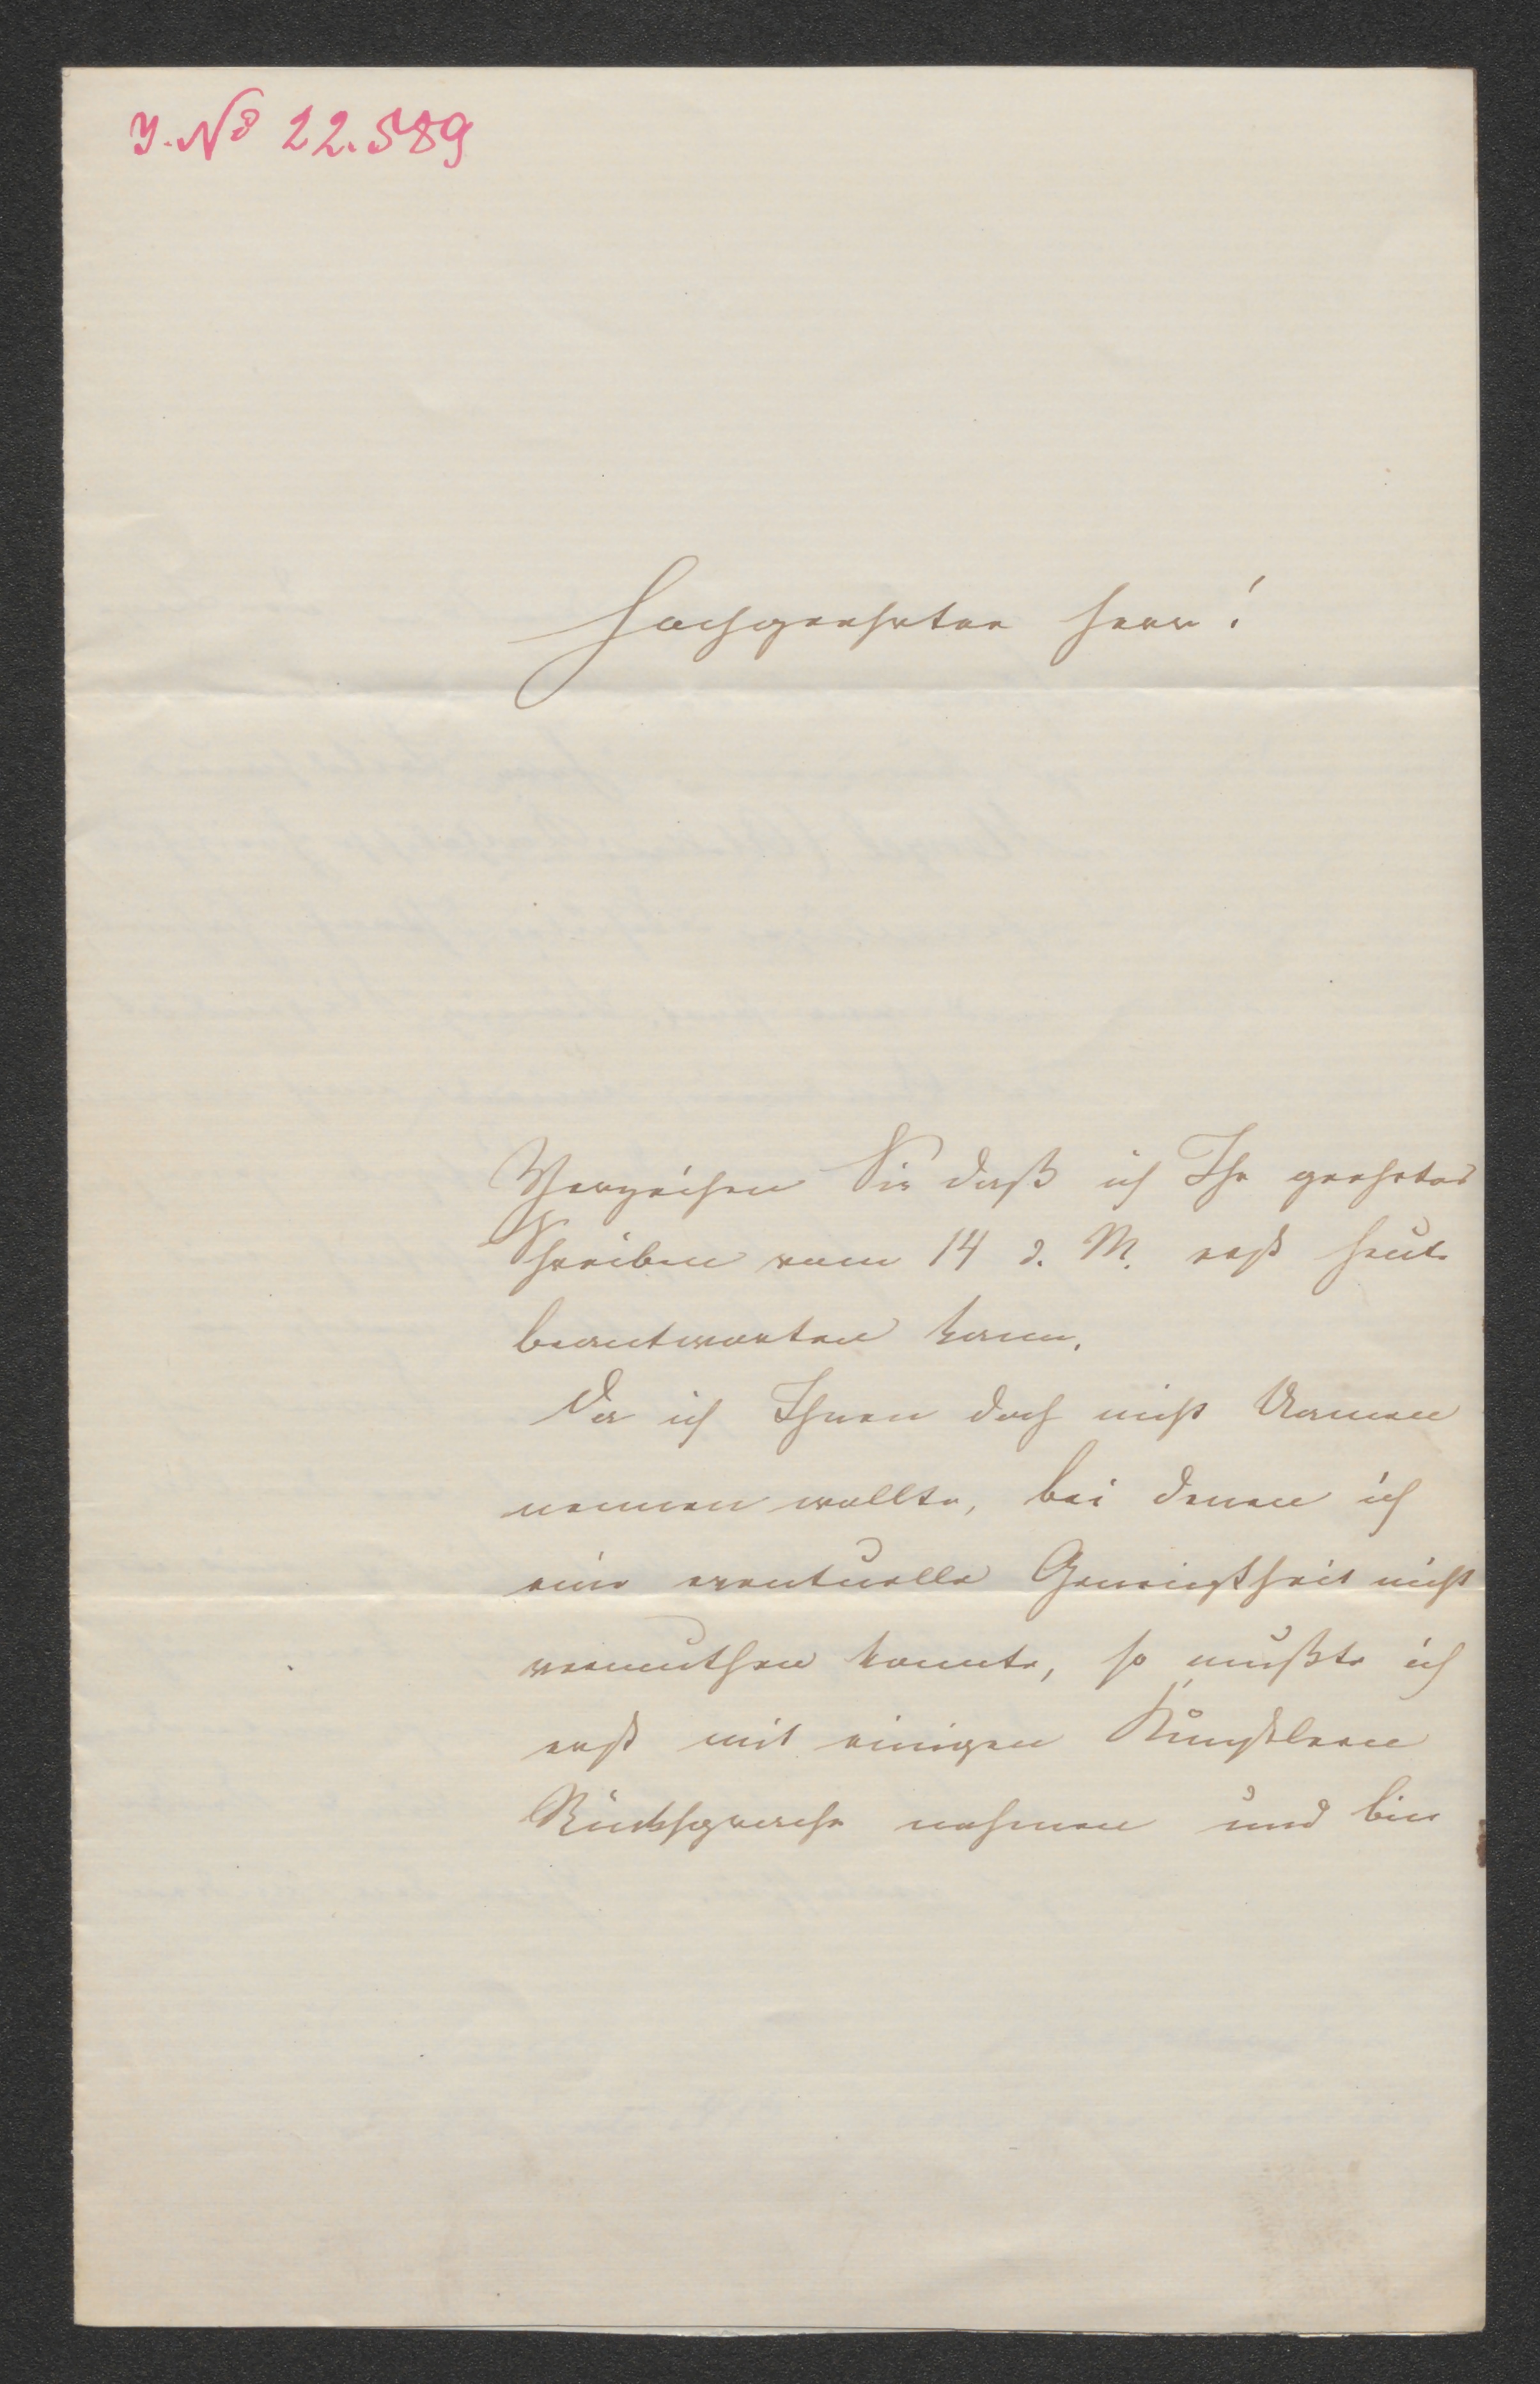 J. No 22.589
Hochgeehrter Herr!
Verzeihen Sie daß ich Ihr geehrtes
Schreiben vom 14 d. M. erst heute
beantworten kann.
Da ich Ihnen doch nicht Namen
nennen wollte, bei denen ich
eine eventuelle Geneigtheit nicht
vermuthen konnte, so mußte ich
erst mit einigen Künstlern
Rücksprache nehmen und bin